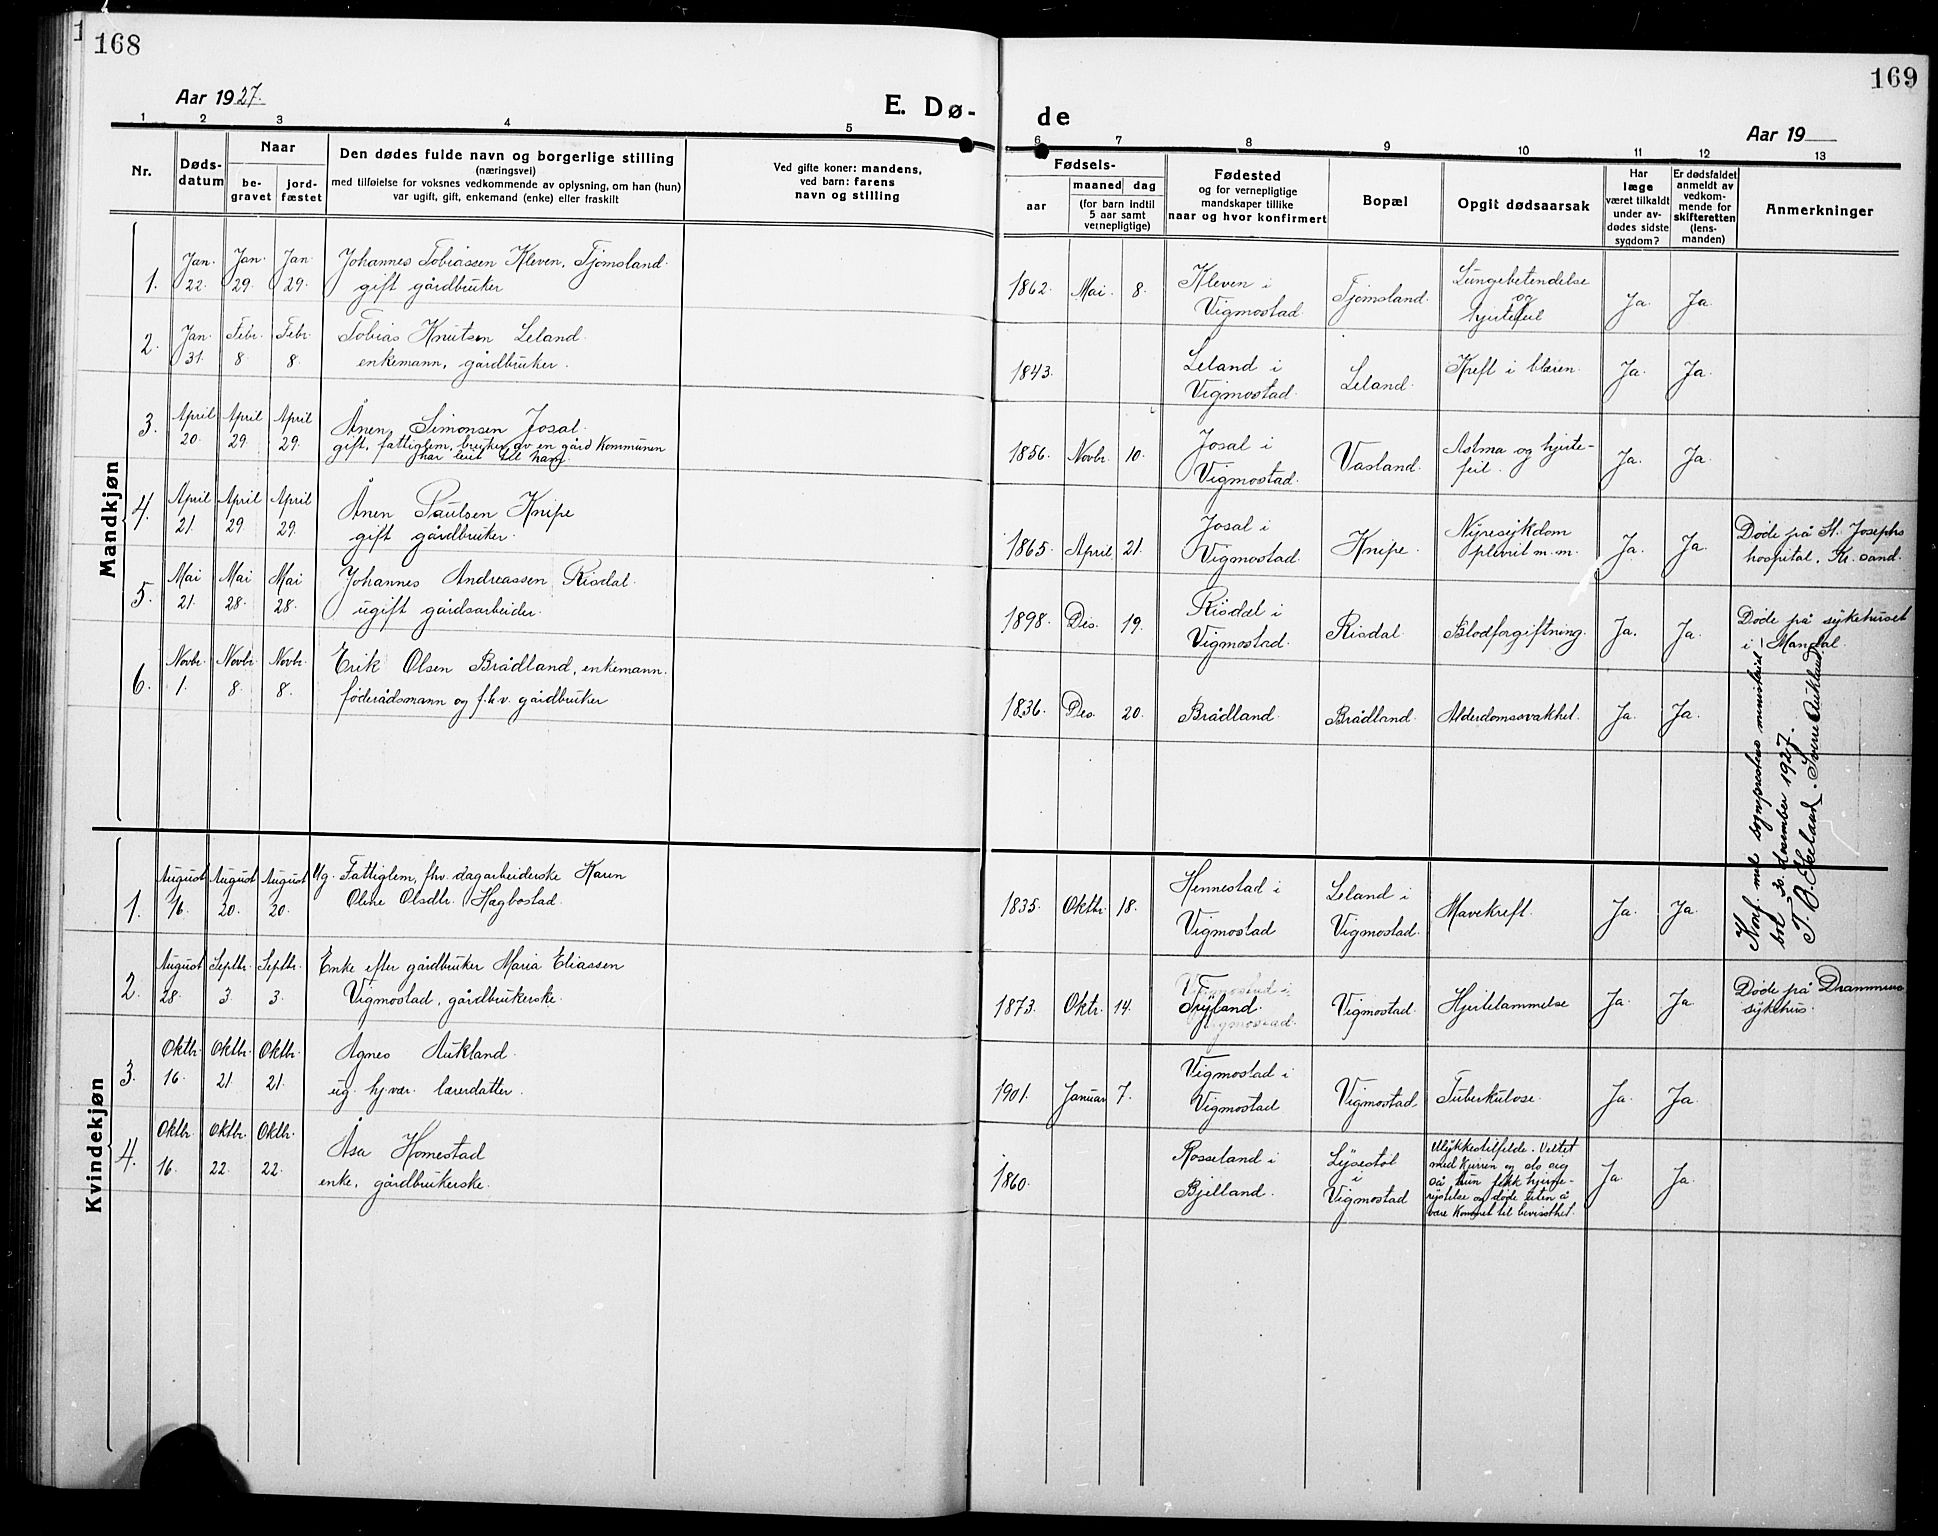 168
Aar 1927.
E. Dø-
1 2 3 4 5
Nr.
Døds-
datum
Naar
be-
gravet
jord-
fæstet
Den dødes fulde navn og borgerlige stilling
(næringsvei)
med tilføielse for voksnes vedkommende av oplysning, om han (hun)
var ugift, gift, enkemand (enke) eller fraskilt
Ved gifte koner: mandens,
ved barn: farens
navn og stilling
Mandkjøn
1. Jan. 22. Jan. 29. Jan. 29. Johannes Tobiassen Kleven, Tjomsland.
gift gårdbruker
2. Jan. 31. Febr. 8. Febr. 8. Tobias Knutsen Leland.
enkemann, gårdbruker.
3. April 20. April 29. April 29. Ånen Simonsen Josal.
gift, fattiglem, bruker av en gård Kommunen
har leiet til ham
4. April 21. April 29. April 29. Ånen Paulsen Knipe
gift gårdbruker.
5. Mai 21. Mai 28. Mai 28. Johannes Andreassen Risdal.
ugift gårdsarbeider.
6. Novbr. 1. Novbr. 8. Novbr. 8. Erik Olsen Brådland, enkemann.
føderådsmann og f.h.v. gårdbruker
Kvindekjøn
1. August 16. August 20. August 20. Ug. Fattiglem, fhv. dagarbeiderske Karen
Oline Olsdtr. Hægbostad.
2. August 28. Septbr. 3. Septbr. 3. Enke efter gårdbruker Maria Eliassen
Vigmostad, gårdbrukerske.
3. Oktbr. 16. Oktbr. 21. Oktbr. 21. Agnes Aukland.
ug. hj.vær. lærerdatter.
4. Oktbr. 16. Oktbr. 22. Oktbr. 22. Åsa Homestad
enke, gårdbrukerske.
169
de
Aar 19
6 7 8 9 10 11 12 13
Fødsels-
aar
maaned
dag
(for barn indtil
5 aar samt
vernepligtige)
Fødested
og for vernepligtige
mandskaper tillike
naar og hvor konfirmert
Bopæl
Opgit dødsaarsak
Har
læge
været tilkaldt
under av-
dødes sidste
sygdom?
Er dødsfaldet
anmeldt av
vedkom-
mende for
skifteretten
(lens-
manden)
Anmerkninger
1862. Mai. 8. Kleven i
Vigmostad. Tjomsland. Lungebetendelse
og
hjertefeil Ja. Ja.
1843. Leland i
Vigmostad. Leland. Kreft i blæren. Ja. Ja.
1856. Novbr. 10. Josal i
Vigmostad. Vasland. Astma og hjerte-
feil. Ja. Ja.
1865. April 21. Josal i
Vigmostad. Knipe. Nyresykdom
plevrit m.m. Ja. Ja. Døde på St. Josephs
hospital, Kr. sand.
1898. Des. 19. Risdal i
Vigmostad. Risdal. Blodforgiftning. Ja. Ja. Døde på sykehuset
i Mandal.
1836. Des. 20. Brådland. Brådland. Alderdomssvakhet. Ja. Ja.
Konf. med sogneprestens ministeriel-
bok 30. desember 1927.
T. B. Ekeland. Sverre Aukland
1835. Oktbr. 18. Hennestad i
Vigmostad Leland i
Vigmostad. Mavekreft. Ja. Ja.
1873. Oktr. 14. Vigmostad i
Tryland.
Vigmostad. Vigmostad. Hjertelammelse Ja. Ja. Døde på Drammens
sykehus.
1901. Januar 7. Vigmostad i
Vigmostad Vigmostad Tuberkulose. Ja. Ja.
1860. Rosseland i
Bjelland. Lysestøl
i
Vigmostad Ulykkestilfelde. Veltet
med kjerren og slo sig
så hun fikk hjerne-
rystelse og døde uten å
være kommet til bevissthet. Ja. Ja.